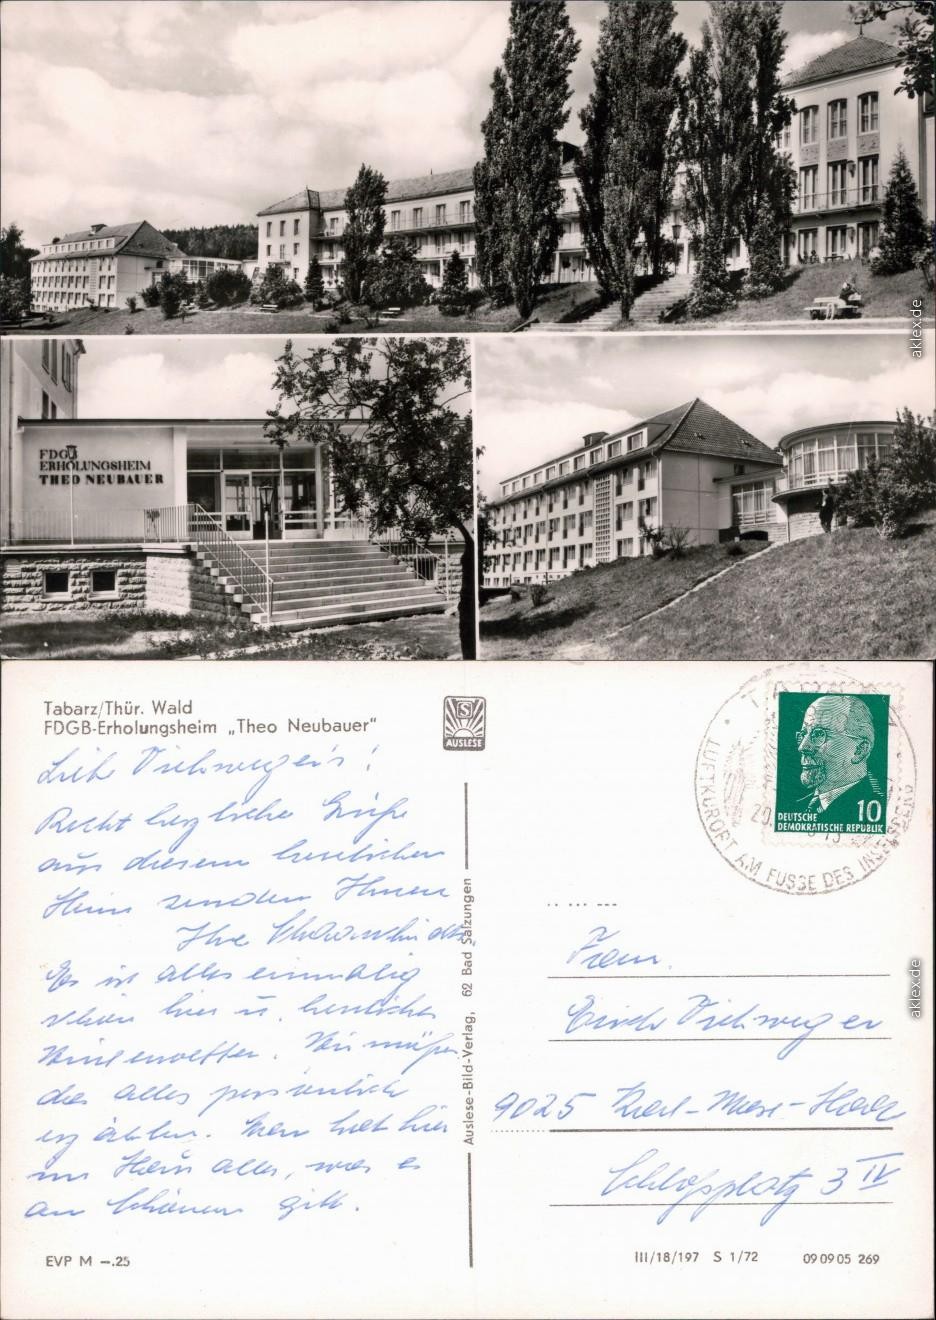 FDGB
ERHOLUNGSHEIM
THEO NEUBAUER
aklex.de
Tabarz/Thür. Wald
FDGB-Erholungsheim „Theo Neubauer"
S
AUSLESE
LUFTKURORT AM FUSSE DES INSELSBERG
20.
10
DEUTSCHE
DEMOKRATISCHE REPUBLIK
Liebe Viehweger's!
Recht herzliche Grüße
aus diesem herrlichen
Heim senden Ihnen
Ihre
Es ist alles einmalig
schön hier u. herrliches
Winterwetter. Wir müßen
das alles persönlich
erzählen. Man hat hier
im Haus alles, was es
an Schönem gibt.
Auslese-Bild-Verlag, 62 Bad Salzungen
Fam.
Erich Viehweger
9025 Karl-Marx-Stadt
Schloßplatz 3 IV
aklex.de
EVP M –.25
III/18/197 S 1/72
09 09 05 269